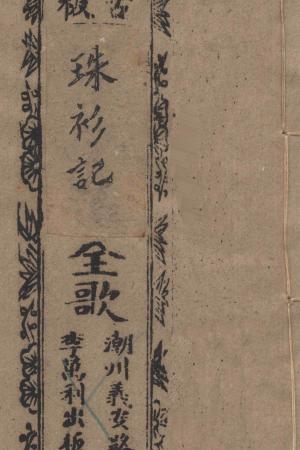 珠衫記
全歌
潮州義安路
李萬利出板